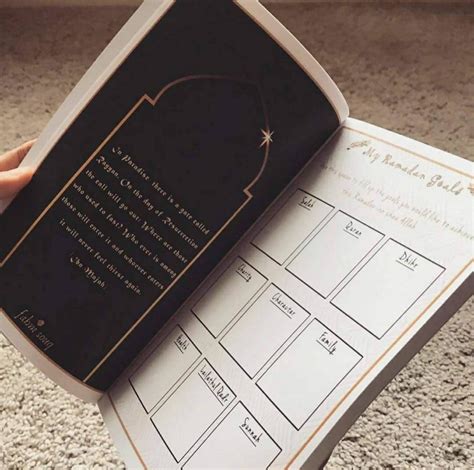 In Paradise, there is a gate called
Rayyan. On the day of Resurrection
the call will go out: Where are those
who used to fast? Who ever is among
those will enter it and whoever enters
it will never feel thirst again.
Ibn Majah
fatim song
My Ramadan Goals
Use this space to fill up the goals you would like to achieve
this Ramadan in shaa Allah
Salah
Quran
Dhikr
Charity
Character
Family
Health
Lailatul Qadr
Sunnah